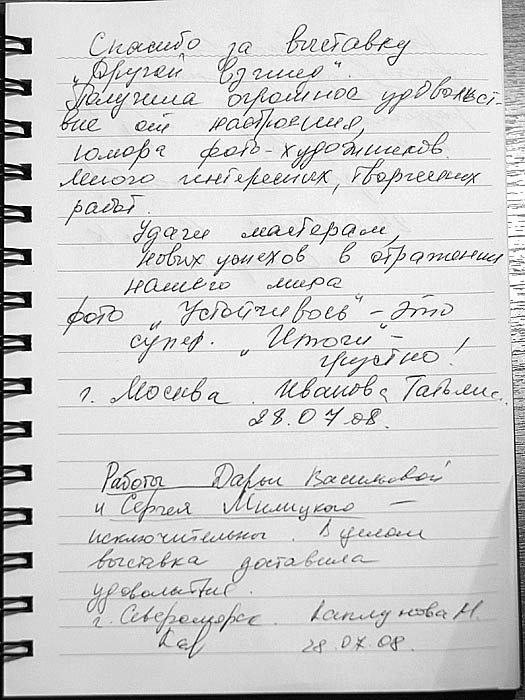 Спасибо за выставку
„Другой взгляд".
Получила огромное удовольст-
вие от настроения,
юмора фото-художников.
Много интересных, творческих
работ.
Удачи мастерам,
новых успехов в отражении
нашего мира
фото „Устойчивось" - это
супер. „Итоги" -
грустно!
г. Москва. Иванова Татьяна.
28.07.08.
Работы Дарьи Васильковой
и Сергея Милицкого —
исключительны. В целом
выставка доставила
удовольствие.
г. Североморск. Каплунова М.
28.07.08.